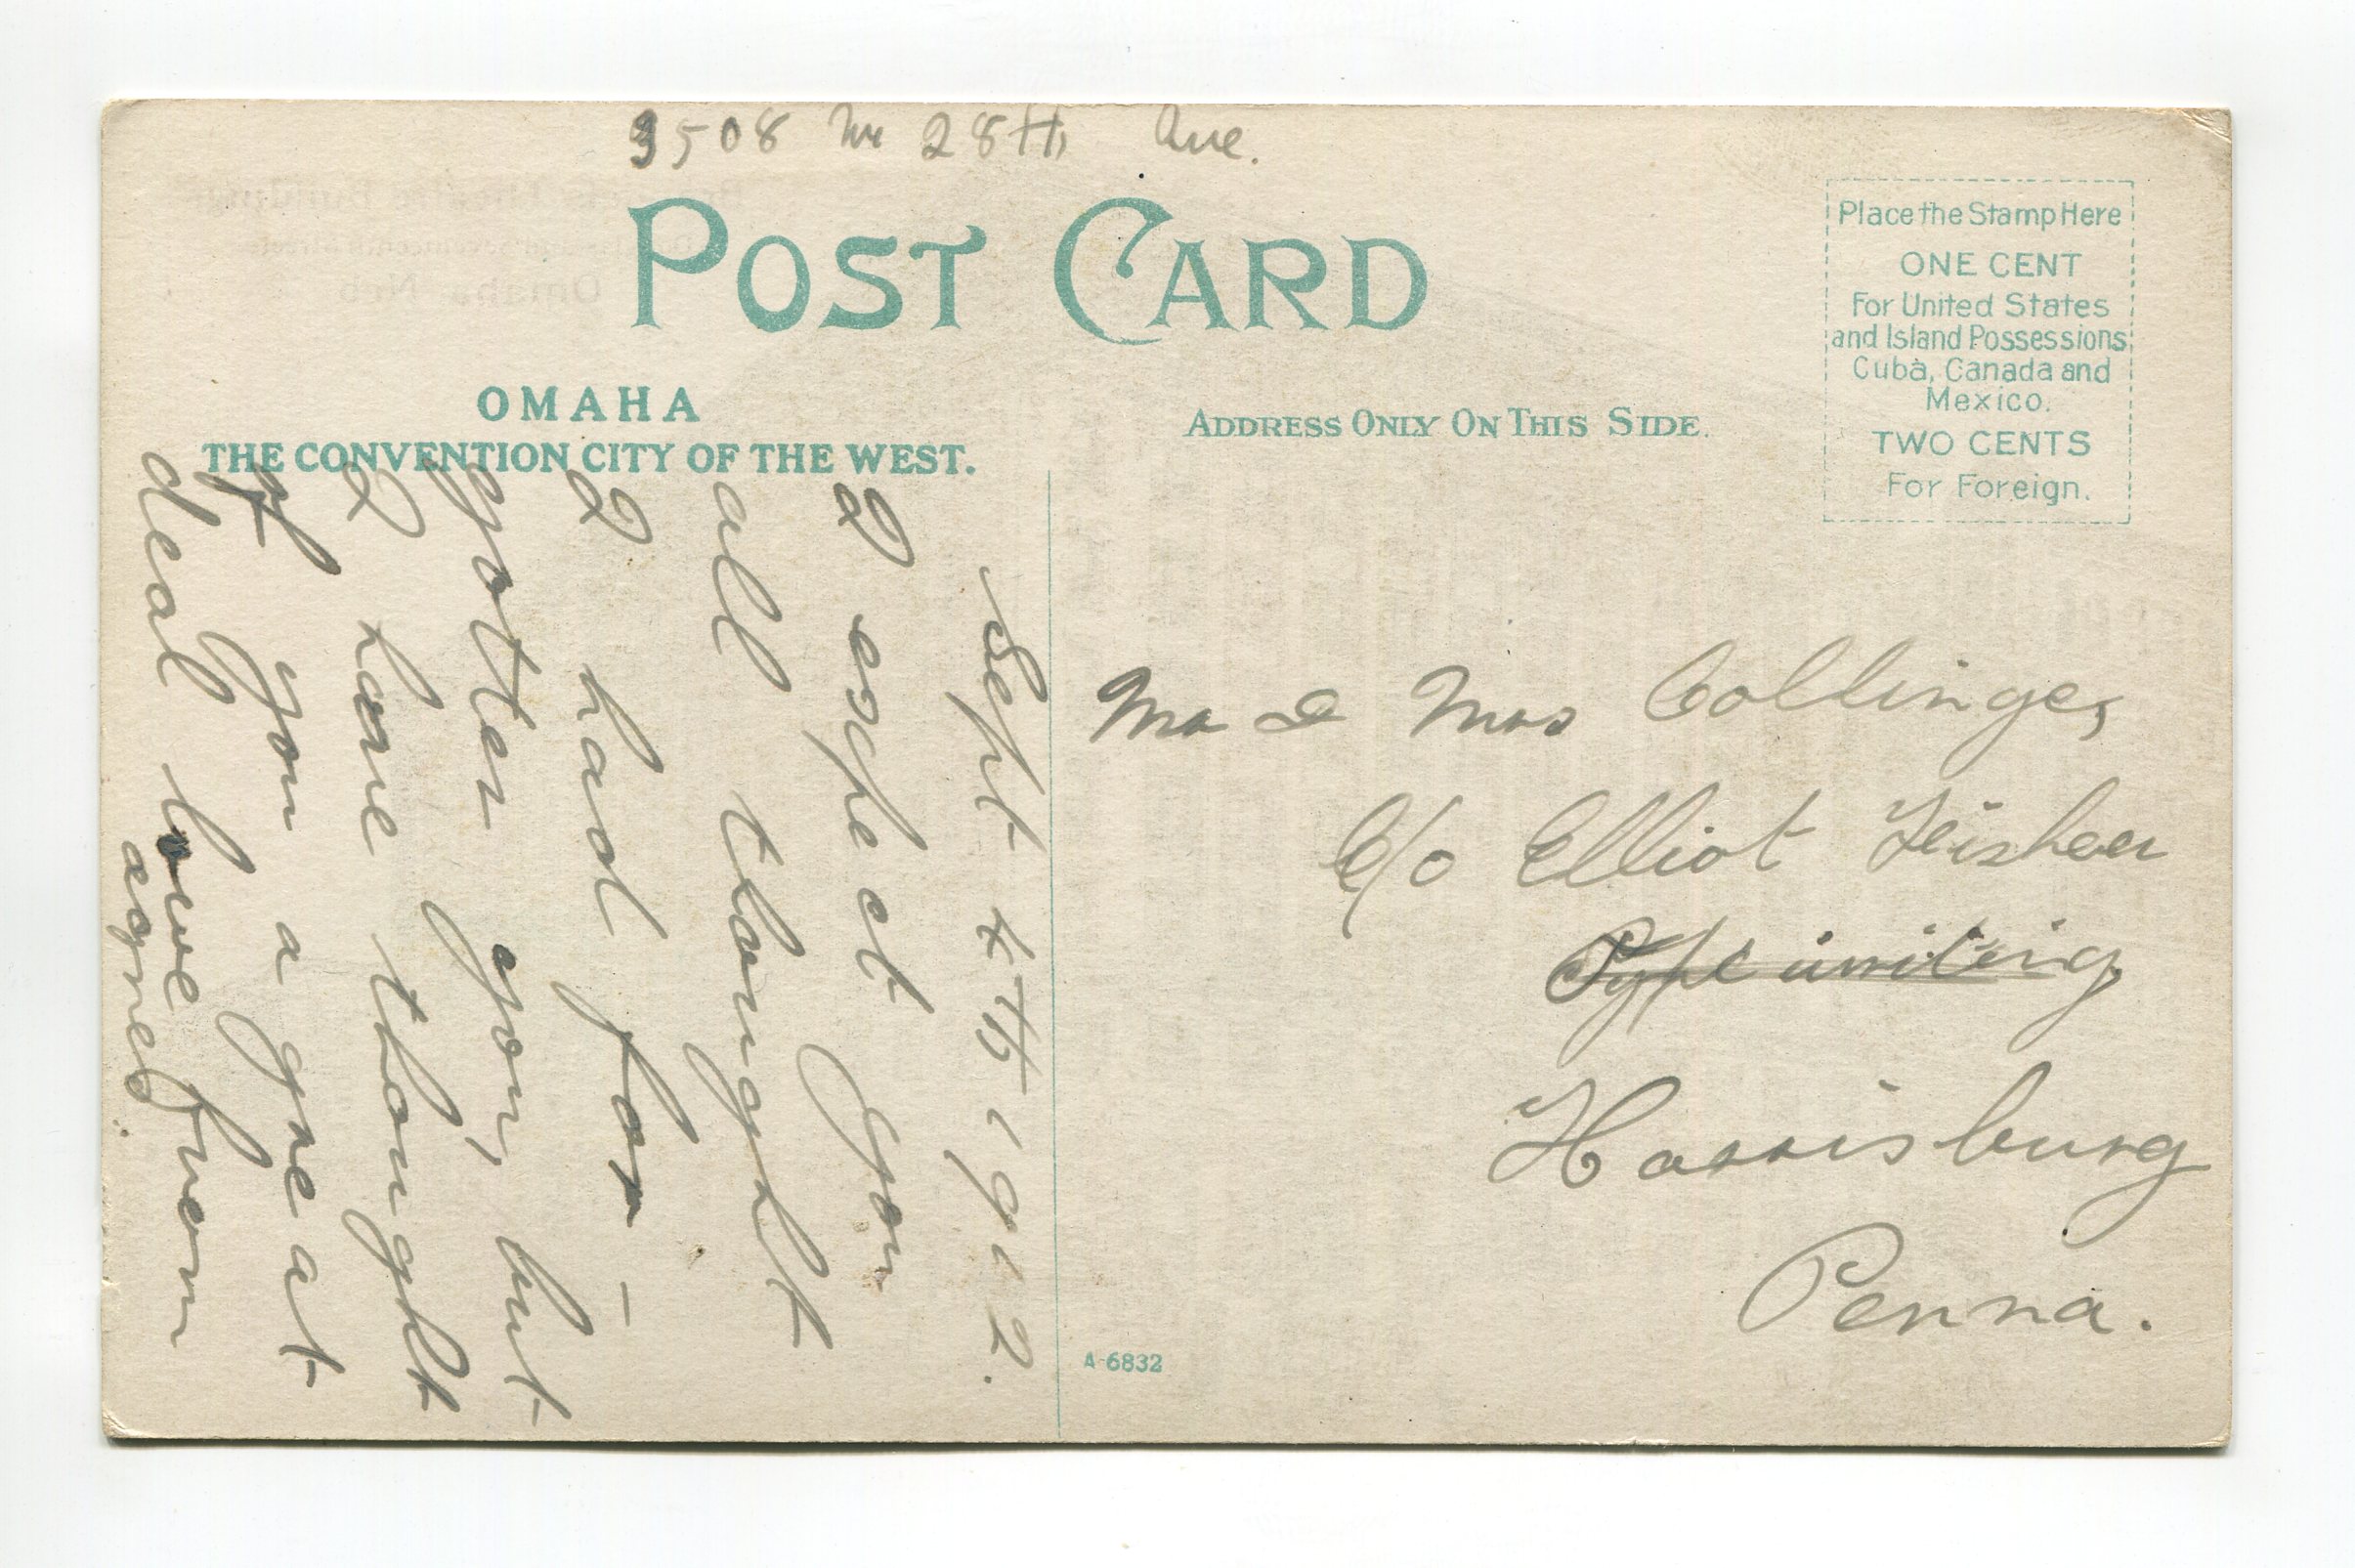 3508 No 28th Ave.
POST CARD
OMAHA
THE CONVENTION CITY OF THE WEST.
ADDRESS ONLY ON THIS SIDE.
Place the Stamp Here
ONE CENT
For United States
and Island Possessions,
Cuba, Canada and
Mexico.
TWO CENTS
For Foreign.
Sept 4th 1912.
I expect you
all thought
I had for-
gotten you, but
I have thought
of you a great
deal love from
agnes.
Mr & Mrs Collinge,
C/o Elliot Fisher
Type writing
Harrisburg
Penna.
A-6832